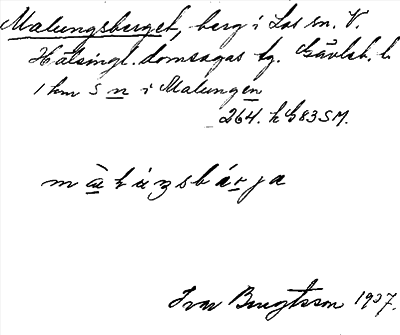 Malungsberget, berg i Los sn. V.
Hälsingl. domsagas tg. Gävleb. l.
1 km S n i Malungen
264. h G83SM.
Ivar Bengtsson 1937.